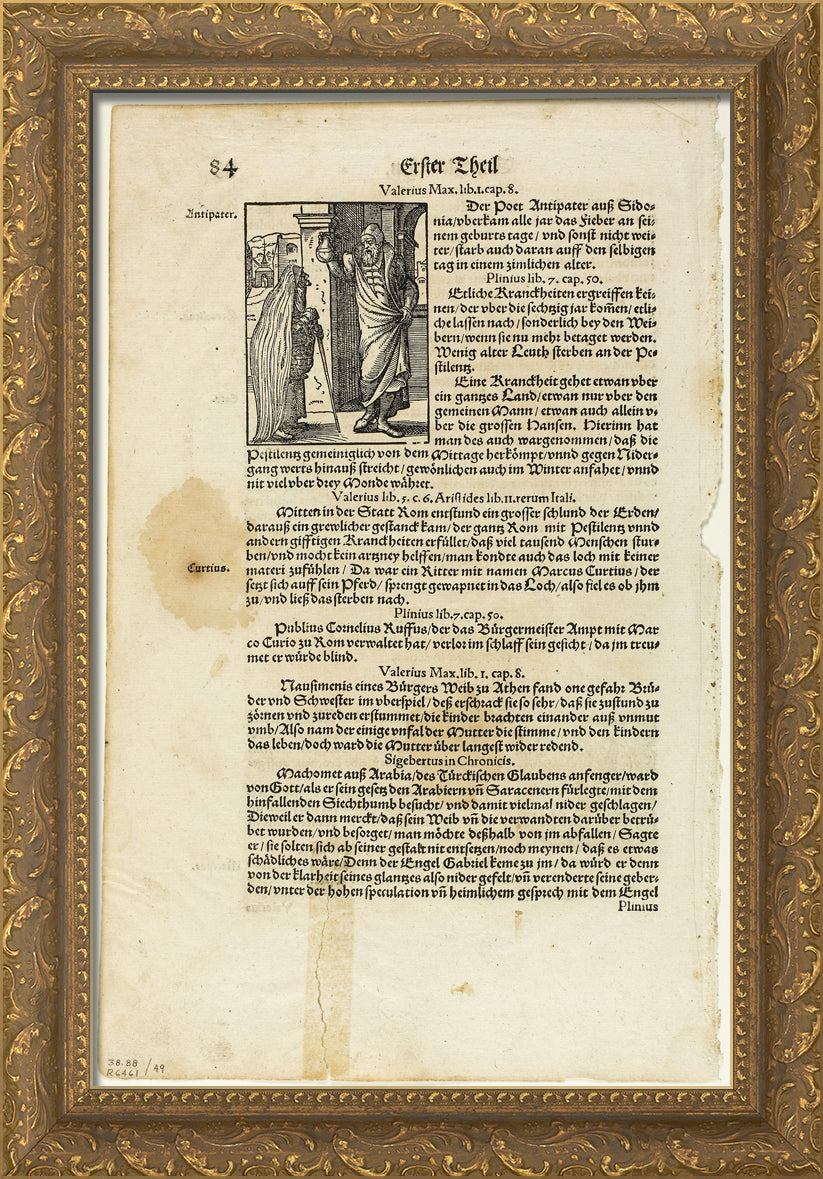 84
Erster Theil
Valerius Max. lib.1.cap. 8.
Antipater.
Der Poet Antipater auß Sido-
nia/vberkam alle jar das Fieber an sei-
nem geburts tage / vnd sonst nicht wei-
ter/starb auch daran auff den selbigen
tag in einem zimlichen alter.
Plinius lib. 7. cap. 50.
Etliche Kranckheiten ergreiffen kei-
nen/der vber die sechtzig jar kom̃en/etli-
che lassen nach / sonderlich bey den Wei-
bern/wenn sie nu mehr betaget werden.
Wenig alter Leuth sterben an der Pe-
stilentz.
Eine Kranckheit gehet etwan vber
ein gantzes Land/etwan nur vber den
gemeinen Mann / etwan auch allein v-
ber die grossen Hansen. Hierinn hat
man des auch wargenommen/daß die
Pestilentz gemeiniglich von dem Mittage herkömpt/vnnd gegen Nider-
gang werts hinauß streicht/gewönlichen auch im Winter anfahet/vnnd
nit viel vber drey Monde währet.
Valerius lib. 5. c. 6. Aristides lib.11.rerum Itali.
Mitten in der Statt Rom entstund ein grosser schlund der Erden/
darauß ein grewlicher gestanck kam/der gantz Rom mit Pestilentz vnnd
andern gifftigen Kranckheiten erfüllet/daß viel tausend Menschen stur-
ben/vnd mocht kein artzney helffen/man kondte auch das loch mit keiner
Curtius.
materi zufühlen / Da war ein Ritter mit namen Marcus Curtius /der
setzt sich auff sein Pferd/ sprengt gewapnet in das Loch/also fiel es ob jhm
zu/vnd ließ das sterben nach.
Plinius lib.7.cap. 50.
Publius Cornelius Ruffus/der das Bürgermeister Ampt mit Mar
co Curio zu Rom verwaltet hat/verlor im schlaff sein gesicht / da jm treu-
met er würde blind.
Valerius Max.lib. 1. cap. 8.
Nausimenis eines Bürgers Weib zu Athen fand one gefahr Brü-
der vnd Schwester im vberspiel/deß erschrack sie so sehr/daß sie zustund zu
zörnen vnd zureden erstummet/die kinder brachten einander auß vnmut
vmb/Also nam der einige vnfal der Mutter die stimme / vnd den kindern
das leben/doch ward die Mutter über langest wider redend.
Sigebertus in Chronicis.
Machomet auß Arabia/des Türckischen Glaubens anfenger/ward
von Gott/als er sein gesetz den Arabiern vñ Saracenern fürlegte/mit dem
hinfallenden Siechthumb besucht/ vnd damit vielmal nider geschlagen/
Dieweil er dann merckt/daß sein Weib vñ die verwandten darüber betrü-
bet wurden/vnd besorget/ man möchte deßhalb von jm abfallen / Sagte
er / sie solten sich ab seiner gestalt nit entsetzen/noch meynen / daß es etwas
schädliches wäre/Denn der Engel Gabriel keme zu jm / da würd er denn
von der klarheit seines glantzes also nider gefelt/vñ verenderte seine geber-
den/vnter der hohen speculation vñ heimlichem gesprech mit dem Engel
Plinius
38.88
R6461 / 49